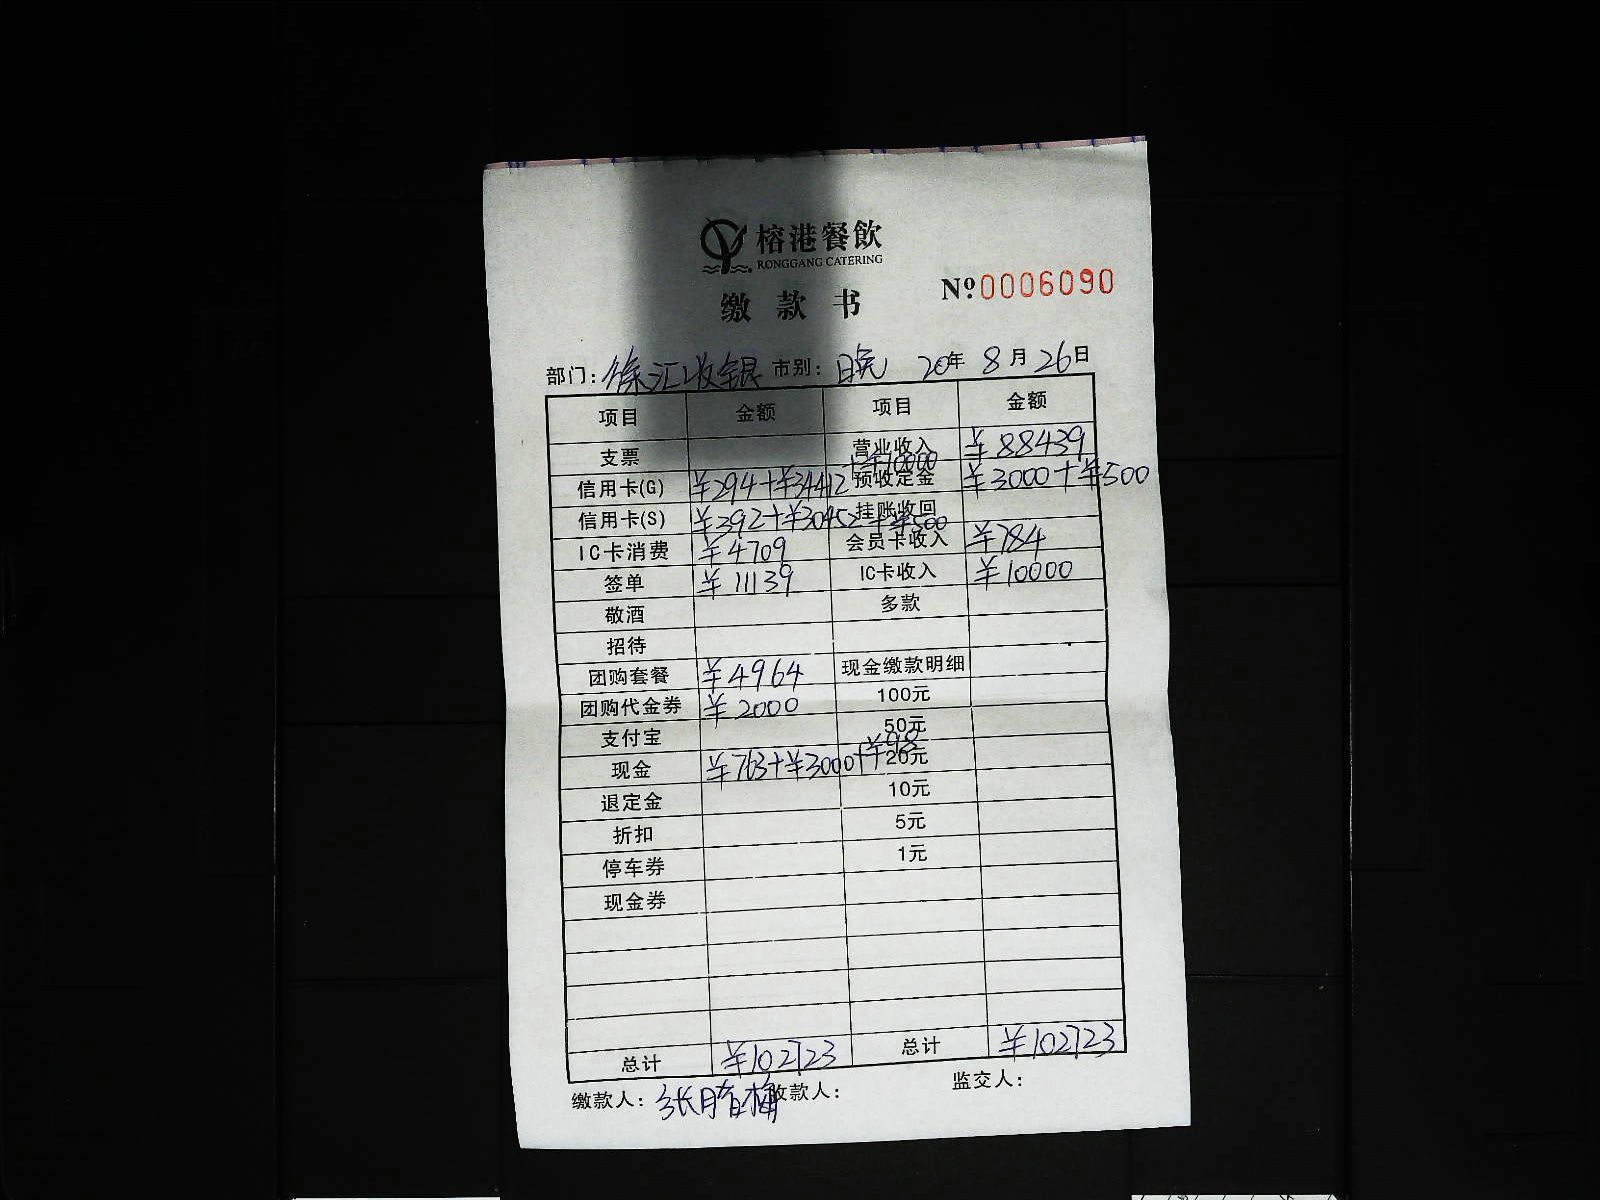 榕港餐飲
RONGGANG CATERING
缴款书
Nº:0006090
部门: 徐汇收银 市别: 晚 20年 8月 26日
项目 金额 项目 金额
支票 营业收入 ¥88439
信用卡(G) ¥294+¥34412+¥10000 预收定金 ¥3000+¥500
信用卡(S) ¥392+¥30452+¥500 挂账收回
IC卡消费 ¥4709 会员卡收入 ¥784
签单 ¥11139 IC卡收入 ¥10000
敬酒 多款
招待
团购套餐 ¥4964 现金缴款明细
团购代金券 ¥2000 100元
支付宝 50元
现金 ¥763+¥3000+¥98 20元
退定金 10元
折扣 5元
停车券 1元
现金券
总计 ¥102723 总计 ¥102723
缴款人: 收款人: 监交人: